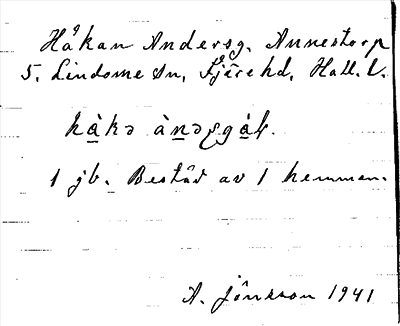 Håkan Andersg. Annestorp
5. Lindome sn, Fjäre hd, Hall. l.
1 jb. Består av 1 hemman.
A. Jönsson 1941